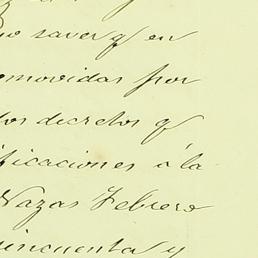 saver q en
omovidas por
los decretos q
ificaciones á la
Nazas Febrero
cincuenta y